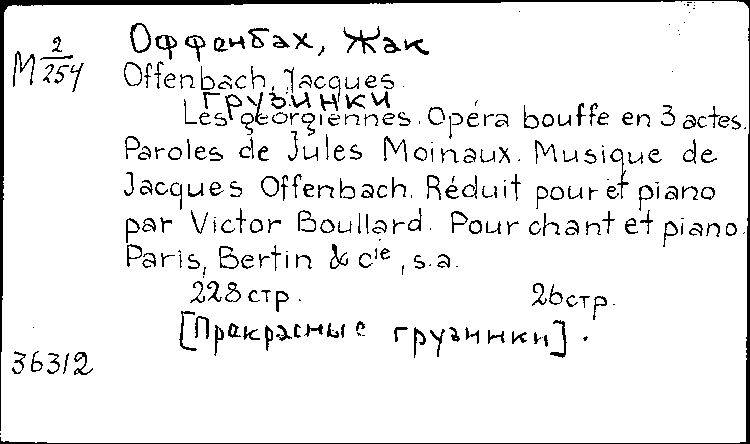 Оффенбах, Жак
M 2/254
Offenbach, Jacques.
Грузинки
Les georgiennes. Opéra bouffe en 3 actes.
Paroles de Jules Moinaux. Musique de
Jacques Offenbach. Réduit pour et piano
par Victor Boullard. Pour chant et piano.
Paris, Bertin & cie, s.a.
228 стр. 26 стр.
[Прекрасные грузинки].
36312